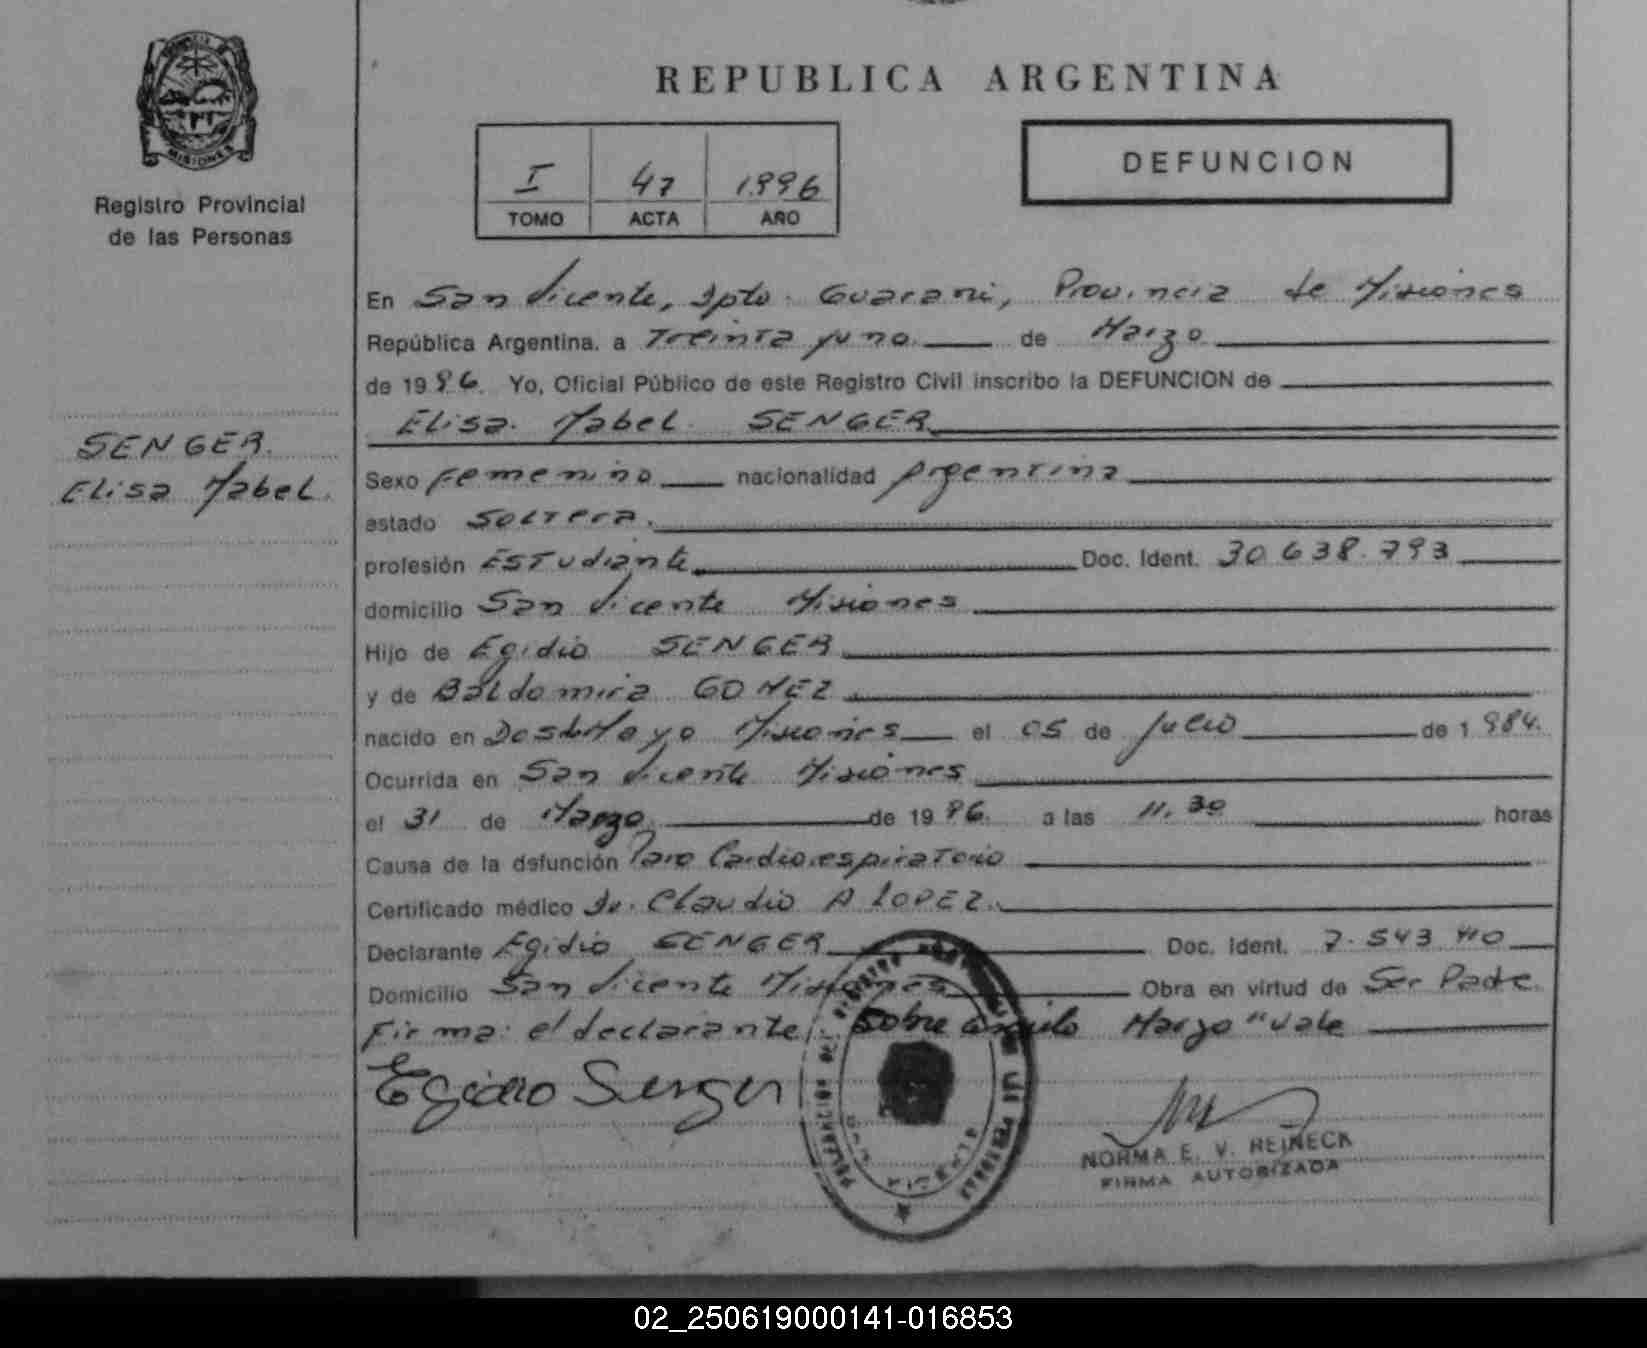 REPUBLICA ARGENTINA
MISIONES
Registro Provincial
de las Personas
I 47 1996
TOMO ACTA AÑO
DEFUNCION
En San Vicente, Dpto. Guarani, Provincia de Misiones
República Argentina. a Treinta y uno de Marzo
de 1996. Yo, Oficial Público de este Registro Civil inscribo la DEFUNCION de
Elisa Mabel SENGER
SENGER
Elisa Mabel.
Sexo Femenino nacionalidad Argentina
estado Soltera.
profesión Estudiante Doc. Ident. 30.638.793
domicilio San Vicente Misiones
Hijo de Egidio SENGER
y de Baldomira GOMEZ
nacido en Dos de Mayo Misiones el 05 de Julio de 1984.
Ocurrida en San Vicente Misiones
el 31 de Marzo de 1996. a las 11.30 horas
Causa de la defunción Paro Cardiorespiratorio
Certificado médico Dr. Claudio A LOPEZ.
Declarante Egidio SENGER Doc. Ident. 7.543.410
Domicilio San Vicente Misiones Obra en virtud de Ser Padre.
Firma: el declarante Sobre Marzo "vale
Egidio Senger
NORMA E. V. REINECK
FIRMA AUTORIZADA
02_250619000141-016853